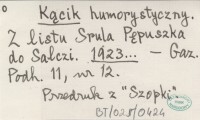 Kącik humorystyczny.
Z listu Srula Pępuszka
do Salczi. 1923... — Gaz.
Podh. 11, nr 12.
Przedruk z "Szopki"
BT/025/0424